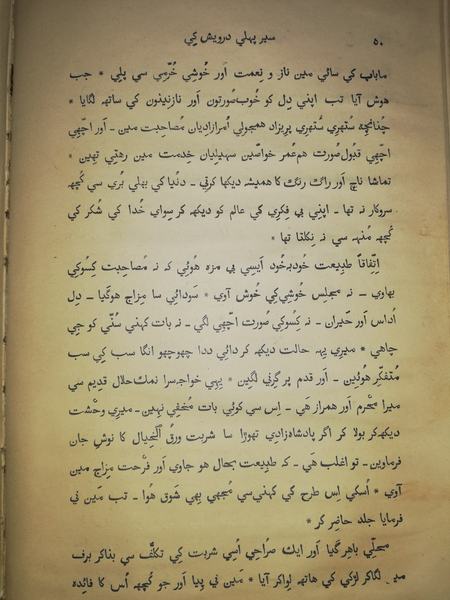 ۵۰ سیر پہلي درویش کي
ماباپ کي سائي مین ناز و نِعمت اَور خُوشِي خُرّمِي سي پلِي * جب
ہوش آیا تب اپني دِل کو خُوب‌صُورتون اَور نازنینون کي ساتھہ لگایا *
چُنانچِہ سُتھري سُتھري پریزاد ہمجولي اُمرازادِیان مُصاحِبت مین ـ اَور اچھِّي
اچھِّي قبُول‌صُورت ہم‌عُمر خواصین سہیلِیان خِدمت مین رہتي تھین *
تماشا ناچ اَور راگ رنگ کا ہمیشہ دیکھا کرتي ـ دُنیا کي بھلي بُري سي کُچھہ
سروکار نہ تھا ـ اپني بي فِکري کي عالم کو دیکھہ کر سِواي خُدا کي شُکر کي
کُچھہ مُنہہ سي نہ نِکلتا تھا *
اِتّفاقاً طبِیعت خُودبخُود اَیسي بي مزہ ہُوئي کہ نہ مُصاحِبت کِسُوکي
بھاوي ـ نہ مجلِس خُوشي‌کي خُوش آوي * سَودائي سا مِزاج ہوگیا ـ دِل
اُداس اَور حَیران ـ نہ کِسُوکي صُورت اچھِّي لگي ـ نہ بات کہني سُنّي کو جي
چاہي * میري یِہہ حالت دیکھہ کر دائي ددا چھوچھو انگا سب کي سب
مُتفکِّر ہُوئین ـ اَور قدم پر گِرني لگین * یِہي خواجہ‌سرا نمک‌حلال قدیم سي
میرا محرم اَور ہمراز ھَي ـ اِس سي کوئي بات مخفي نہین ـ میري وحشت
دیکھہ‌کر بولا کہ اگر پادشاہ‌زادي تھوڑا سا شربت ورقُ الخیال کا نوش جان
فرماوین ـ تو اغلب ھَي ـ کہ طبِیعت بحال ہو جاوي اَور فرحت مِزاج مین
آوي * اُسکي اِس طرح کي کہني سي مُجھي بھِي شَوق ہُوا ـ تب مَین ني
فرمایا جلد حاضِر کر *
محلّي باہر گیا اَور ایک صُراحي اُسي شربت کِي تکلُّف سي بناکر برف
مین لگاکر لڑکي کي ہاتھہ لِواکر آیا * مَین ني پِیا اَور جو کُچھہ اُس کا فائدہ